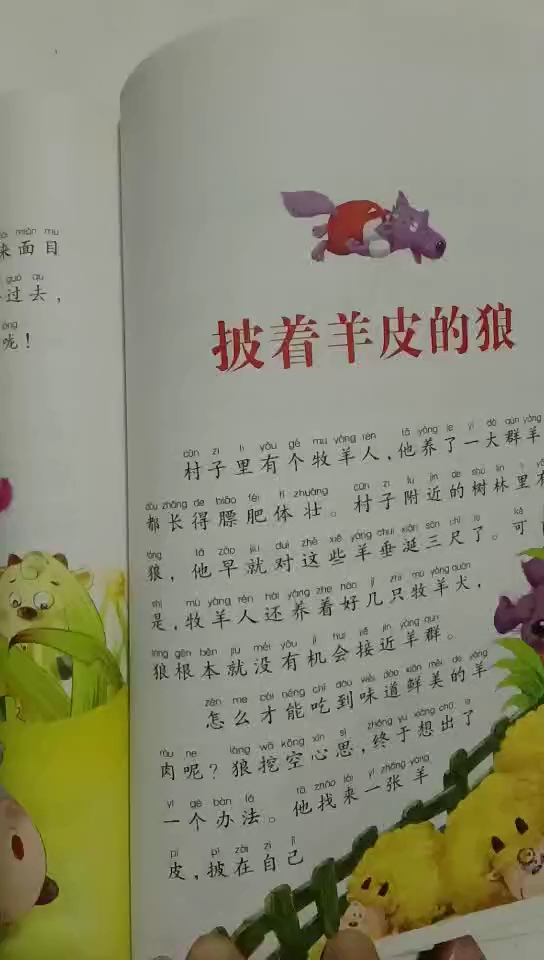 来面目
过去，
咙！
披着羊皮的狼
cūn zi lǐ yǒu gè mù yáng rén tā yǎng le yí dà qún yáng
村子里有个牧羊人，他养了一大群羊
dōu zhǎng de biāo féi tǐ zhuàng cūn zi fù jìn de shù lín lǐ
都长得膘肥体壮。村子附近的树林里有
láng tā zǎo jiù duì zhè xiē yáng chuí xián sān chǐ le kě
狼，他早就对这些羊垂涎三尺了。可
shì mù yáng rén hái yǎng zhe hǎo jǐ zhī mù yáng quǎn
是，牧羊人还养着好几只牧羊犬，
láng gēn běn jiù méi yǒu jī huì jiē jìn yáng qún
狼根本就没有机会接近羊群。
zěn me cái néng chī dào wèi dào xiān měi de yáng
怎么才能吃到味道鲜美的羊
ròu ne láng wā kōng xīn sī zhōng yú xiǎng chū le
肉呢？狼挖空心思，终于想出了
yí gè bàn fǎ tā zhǎo lái yì zhāng yáng
一个办法。他找来一张羊
pí pī zài zì jǐ
皮，披在自己